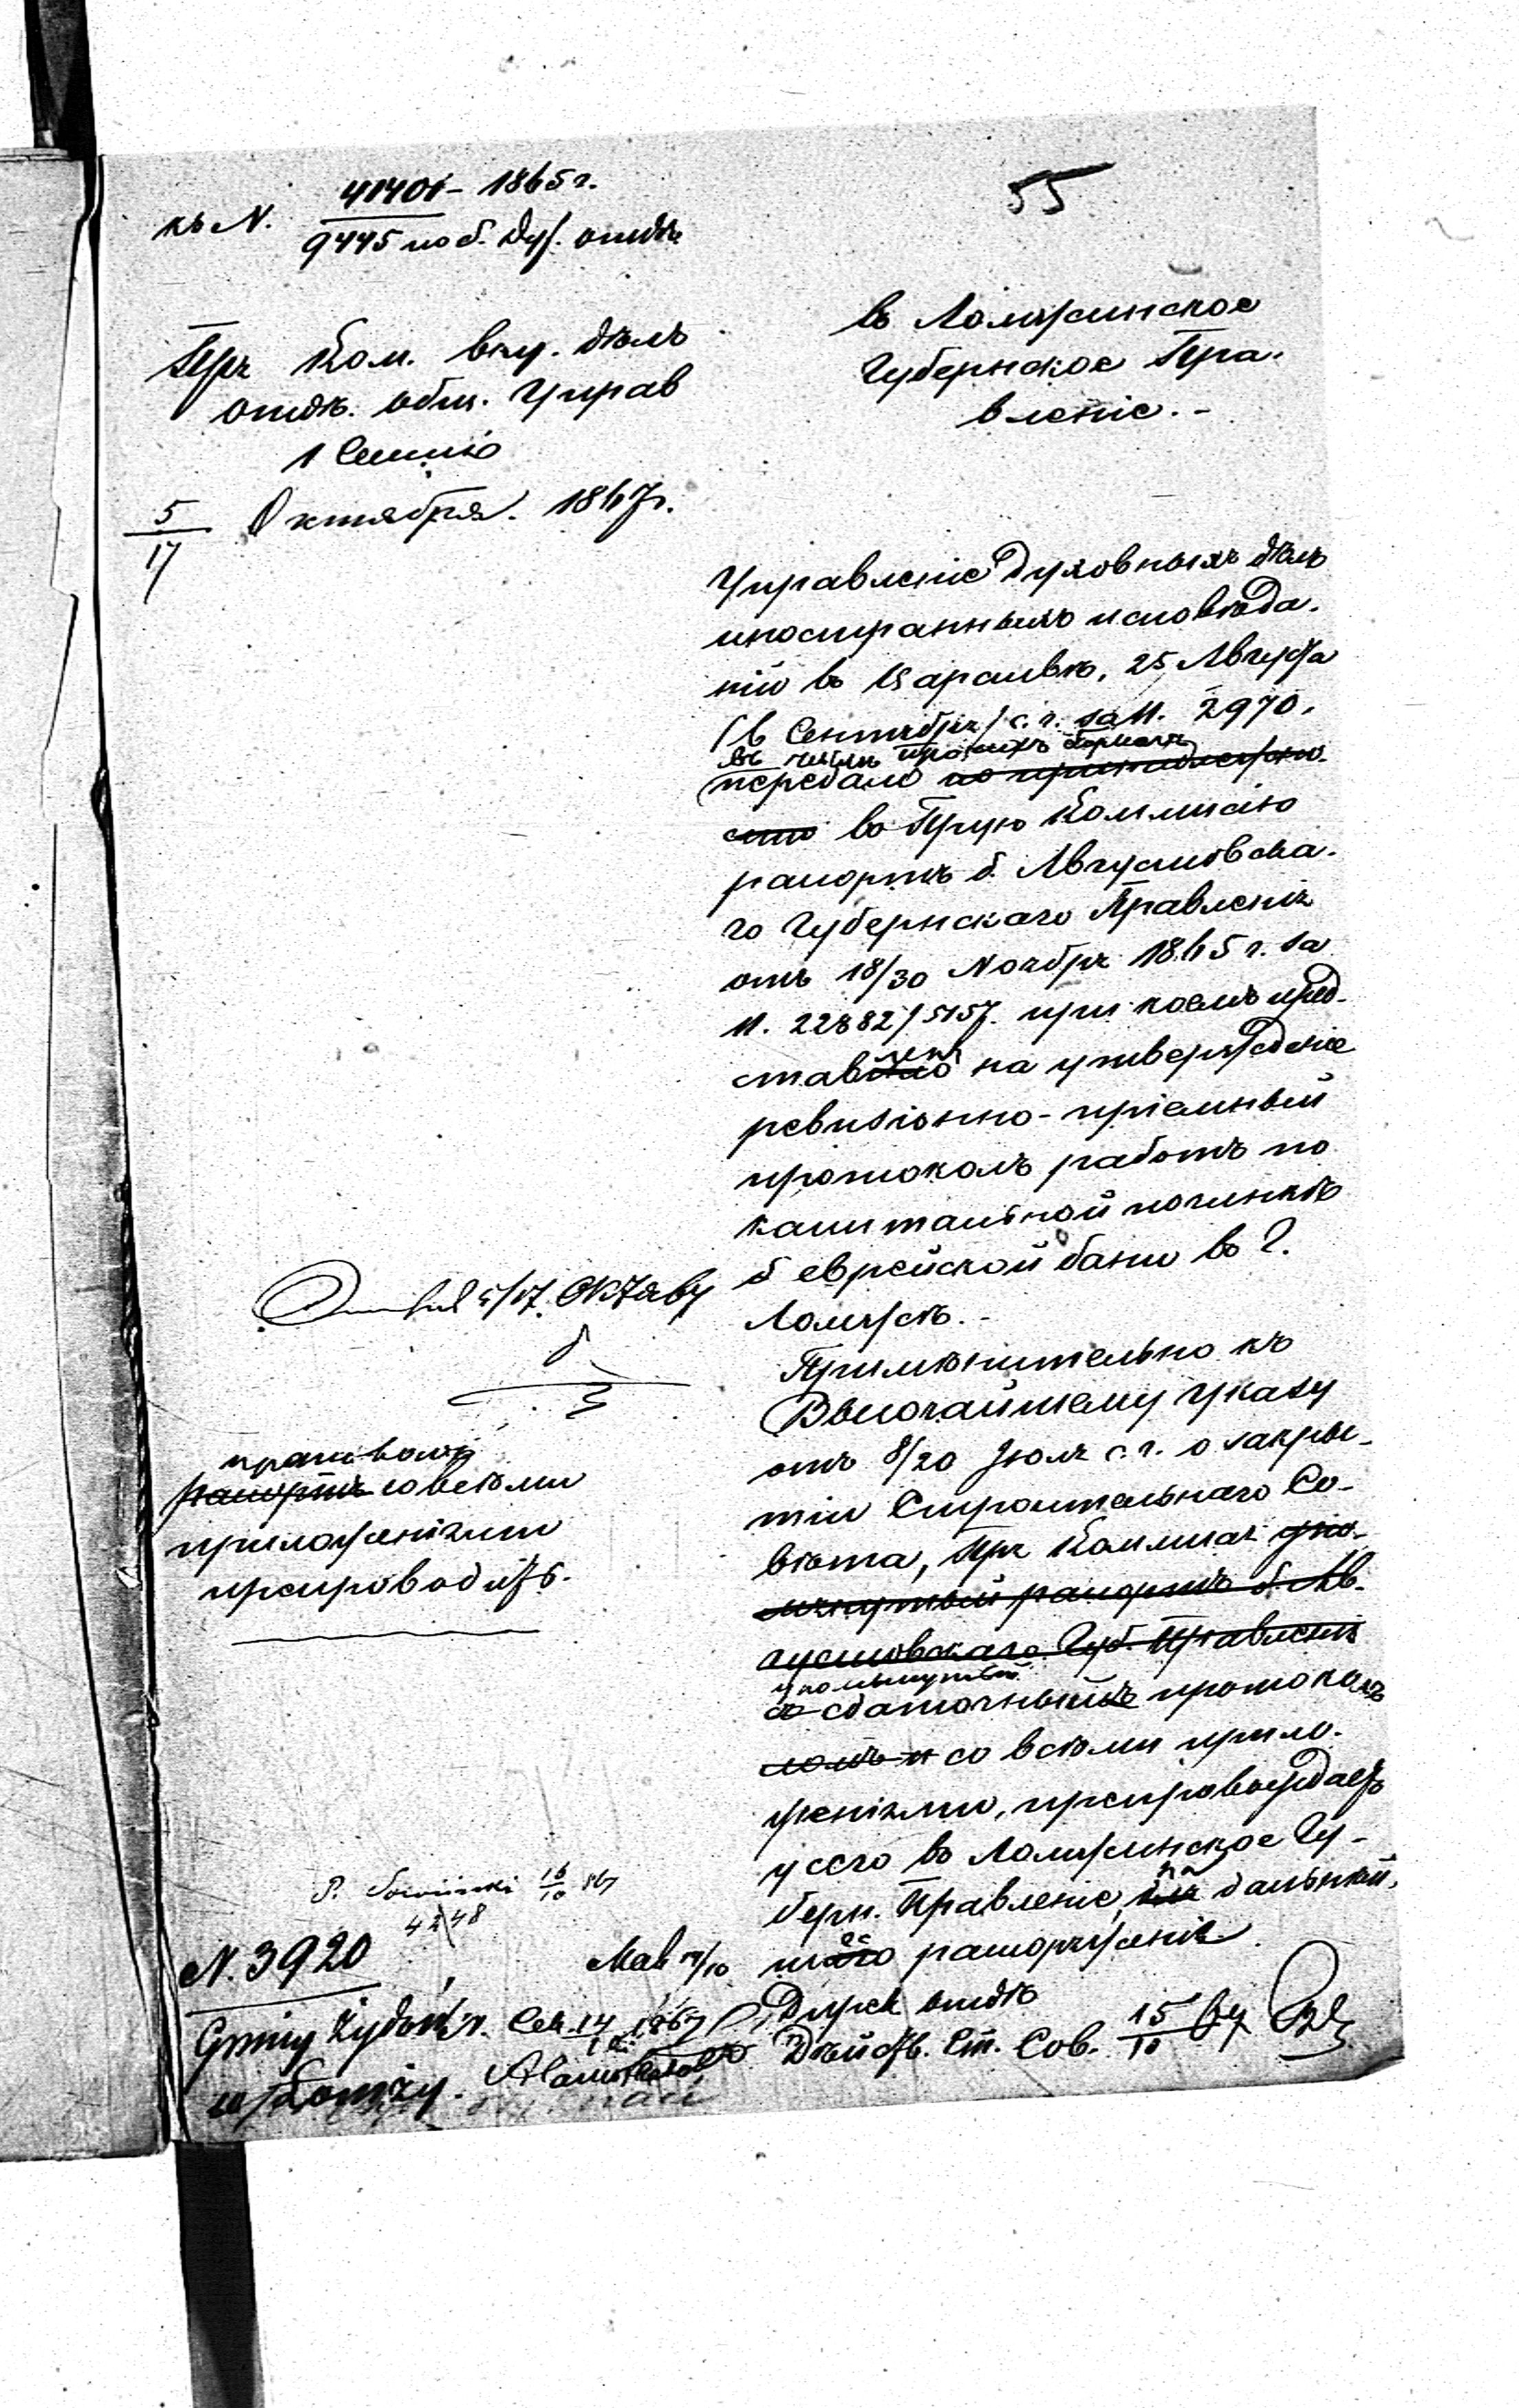 55
41401 - 1865 г.
къ N.
9445 по б. Дух. отдѣ
Пр. Ком. вну. дѣлъ
отдѣ. общ. Управ
1 Секція
5/17 Октября. 1867 г.
въ Ломжинское
Губернское Пра-
вленіе. -
Управленіе Духовныхъ дѣлъ
иностранныхъ исповѣда-
ній въ Варшавѣ, 25 Августа
(6 Сентября) с. г. за N. 2970,
въ числѣ прочихъ бумагъ
передало по принадлежно-
сти въ Пр-ую Коммисію
рапортъ б. Августовска-
го Губернскаго Правленія
отъ 18/30 Ноября 1865 г. за
N. 22882/5157. при коемъ пред-
ставленъ на утвержденіе
ревизіонно-пріемный
протоколъ работъ по
капитальной починкѣ
б еврейской бани въ Г.
Ломжѣ. -
Примѣнительно къ
Высочайшему указу
отъ 8/20 Іюля с. г. о закры-
тіи Строительнаго Со-
вѣта, Пр. Коммисія упо-
мянутый рапортъ б. Ав-
густовскаго Губ. Правленія
упомянутый
сдаточный протоколъ
ломъ и со всѣми прило-
женіями, препровождаетъ
у сего въ Ломжинское Гу-
берн. Правленіе, на дальнѣй-
шее распоряженіе.
Дирек отдѣ
Дѣйств. Ст. Сов. 15/10 67
5/17. Октября
протоколъ
рапортъ со всѣми
приложеніями
препроводить.
16/10 867
4248
N. 3920
Gminy Żydów.
w Łomży.
14 1867